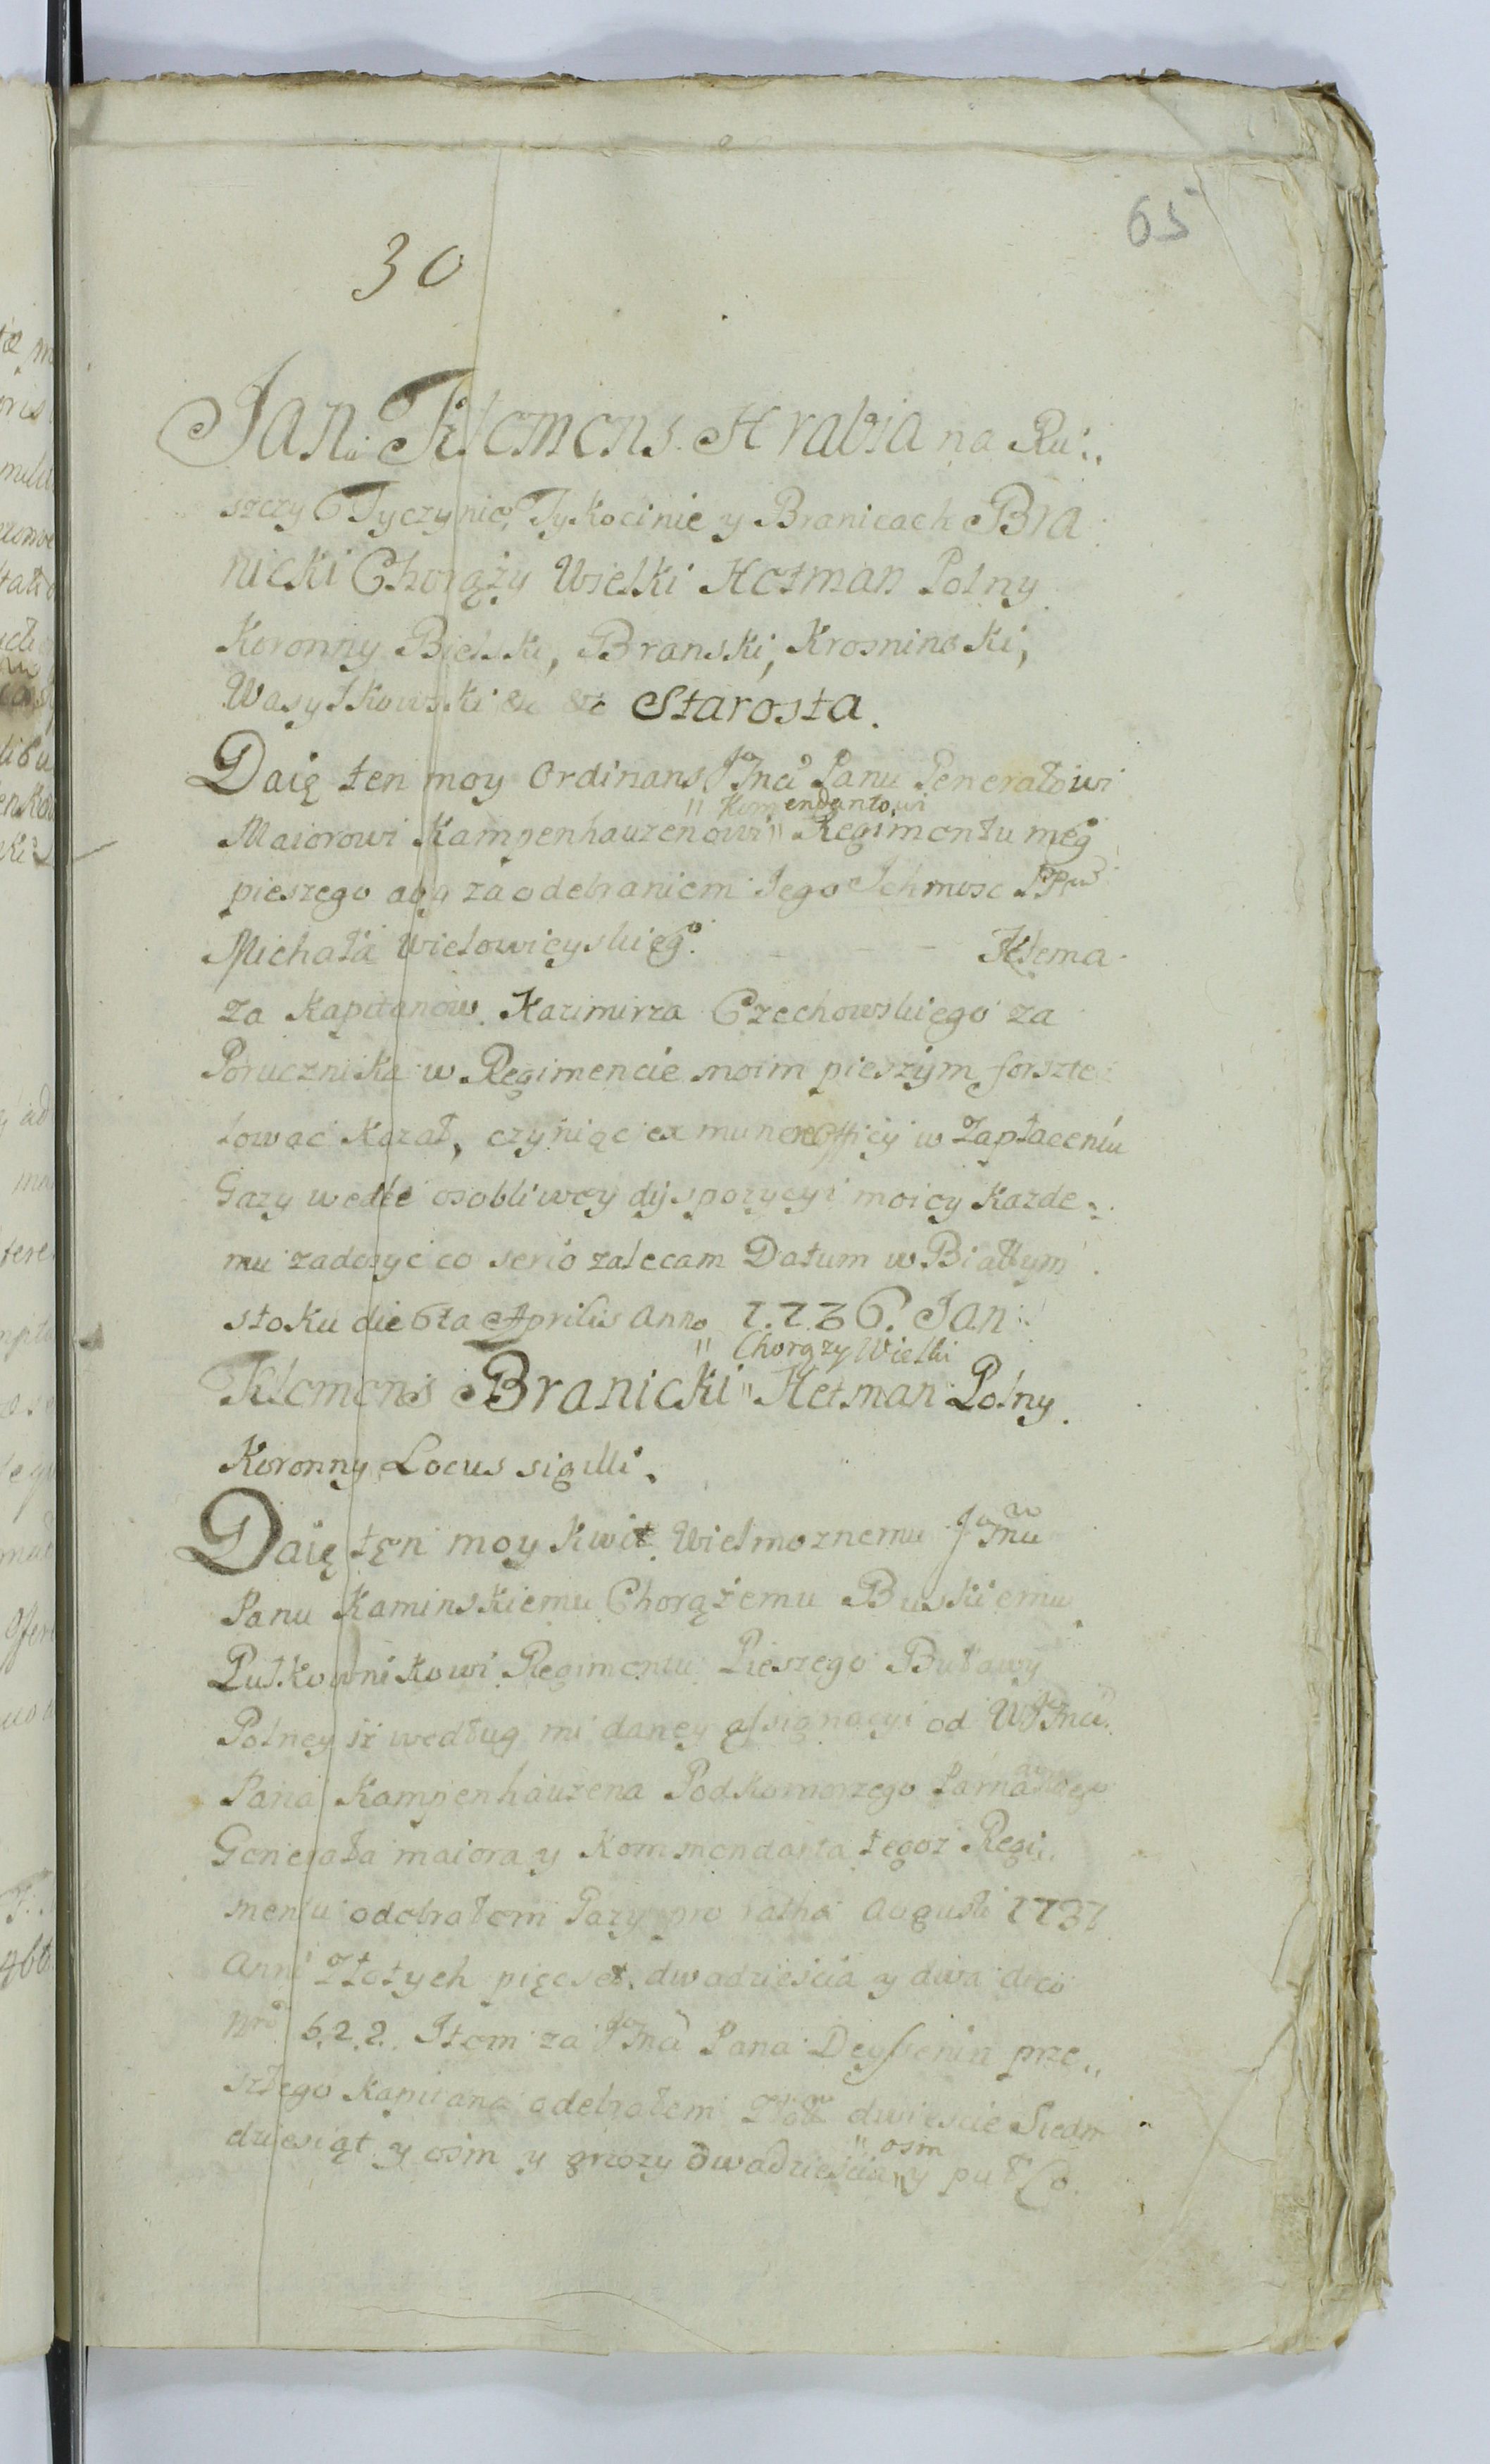 65
30
Jan Klemens Hrabia na Ru:,
szczy Tyczynie, Tykocinie y Branicach Bra
nicki Chorąży Wielki Hetman Polny
Koronny Bielski, Branski, Krosninski,
Wasylkowski &c &c Starosta.
Daię ten moy Ordinans Jmci Panu Generałowi
" Komendantowi
Maiorowi Kampenhauzenowi " Regimentu meg
pieszego aby za odebraniem Jego Ichmosc PP
Michała Wielowieyskieg Klema
za Kapitanow Kazimirza Czechowskiego za
Porucznika w Regimencie moim pieszym forszte
lowac Kazał, czyniąc ex munere Officij w Zapłaceniu
Gazy wedle osobliwey dyspozycyi moiey Kazde:
mu zadosyc co serio zalecam Datum w Białym
stoku die 6ta Aprilis Anno 1736. Jan
" Chorązy Wielki
Klemens Branicki " Hetman Polny
Koronny Locus sigilli.
Daię ten moy Kwit Wielmoznemu Jmu
Panu Kaminskiemu Chorążemu Buskiemu
Pułkownikowi Regimentu Pieszego Buławy
Polney iż według mi daney assignacyi od WJmci
Pana Kampenhauzena Podkomorzego Parnawskiego
Generała maiora y Kommendanta tegoz Regi,
mentu odebrałem Gazy pro ratha Augusti 1737
Anni Złotych pięcset dwadzieścia y dwa dico
Nro 522. Item za Jmci Pana Deybenin prze,,
szłego Kapitana odebrałem Złot dwieście Siedm
" osm
dziesiąt y ośm y grozy dwadzieścia " y puł Co